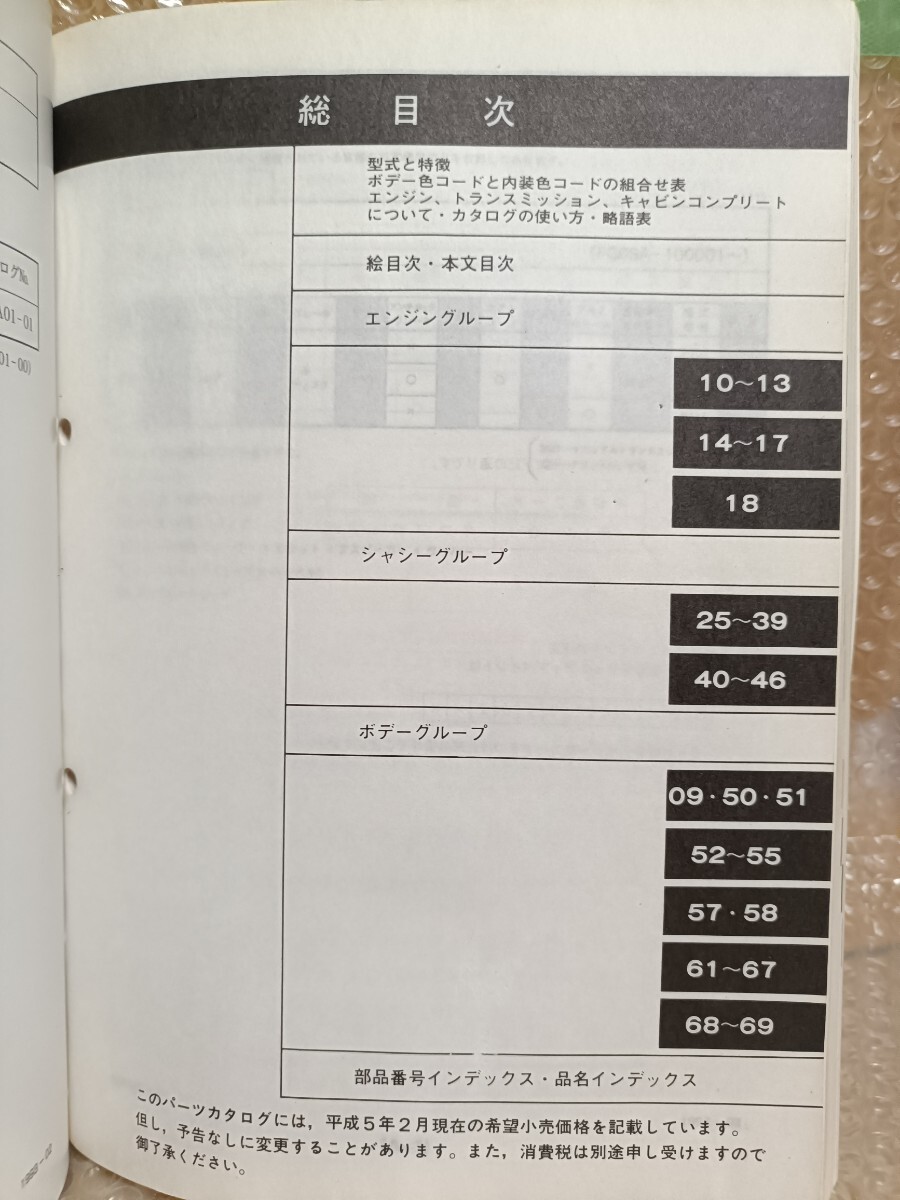 ログ№
A01-01
01-00)
1993-02
総目次
型式と特徴
ボデー色コードと内装色コードの組合せ表
エンジン、トランスミッション、キャビンコンプリート
について・カタログの使い方・略語表
絵目次・本文目次
エンジングループ
10〜13
14〜17
18
シャシーグループ
25〜39
40〜46
ボデーグループ
09・50・51
52〜55
57・58
61〜67
68〜69
部品番号インデックス・品名インデックス
このパーツカタログには，平成5年2月現在の希望小売価格を記載しています。
但し，予告なしに変更することがあります。また，消費税は別途申し受けますので
御了承ください。